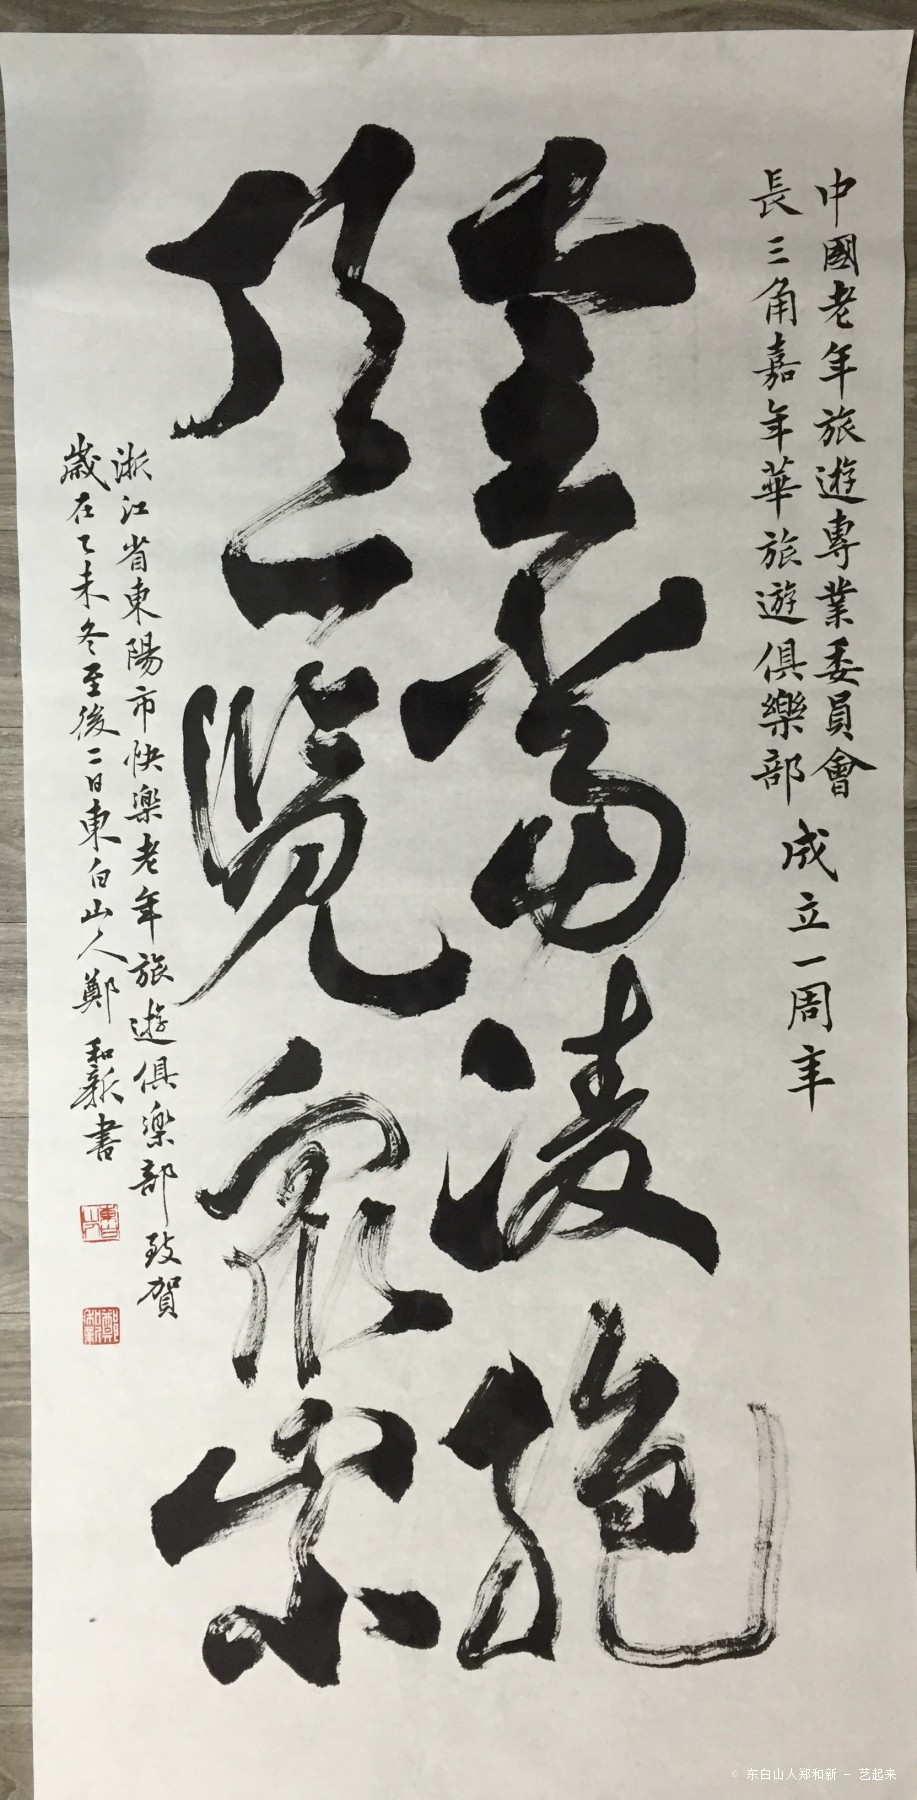 中國老年旅遊專業委員會
長三角嘉年華旅遊俱樂部
成立一周年
會當凌絕
頂一覽眾山小
浙江省東陽市快樂老年旅遊俱樂部致賀
歲在乙未冬至後二日東白山人鄭和新書
東白山人
鄭和新
© 东白山人郑和新 - 艺起来